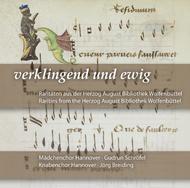 verklingend und ewig
Raritäten aus der Herzog August Bibliothek Wolfenbüttel
Rarities from the Herzog August Bibliothek Wolfenbüttel
Mädchenchor Hannover · Gudrun Schröfel
Knabenchor Hannover · Jörg Breiding